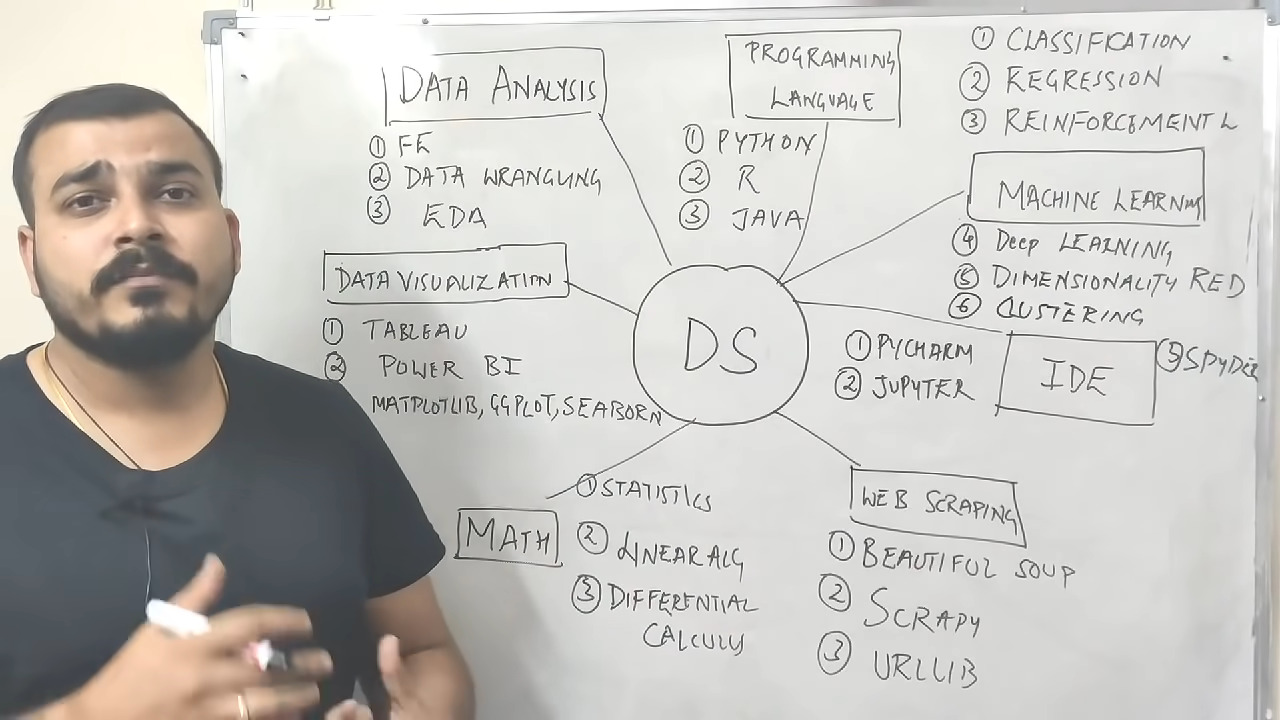 DATA ANALYSIS
① FE
② DATA WRANGLING
③ EDA
PROGRAMMING
LANGUAGE
① PYTHON
② R
③ JAVA
① CLASSIFICATION
② REGRESSION
③ REINFORCEMENT L
MACHINE LEARNING
④ Deep LEARNING
⑤ DIMENSIONALITY RED
⑥ CLUSTERING
DATA VISUALIZATION
① TABLEAU
② POWER BI
MATPLOTLIB, GGPLOT, SEABORN
DS
① PYCHARM
② JUPYTER
IDE
③ SPYDER
MATH
① STATISTICS
② LINEAR ALG
③ DIFFERENTIAL
CALCULUS
WEB SCRAPING
① BEAUTIFUL SOUP
② SCRAPY
③ URLLIB